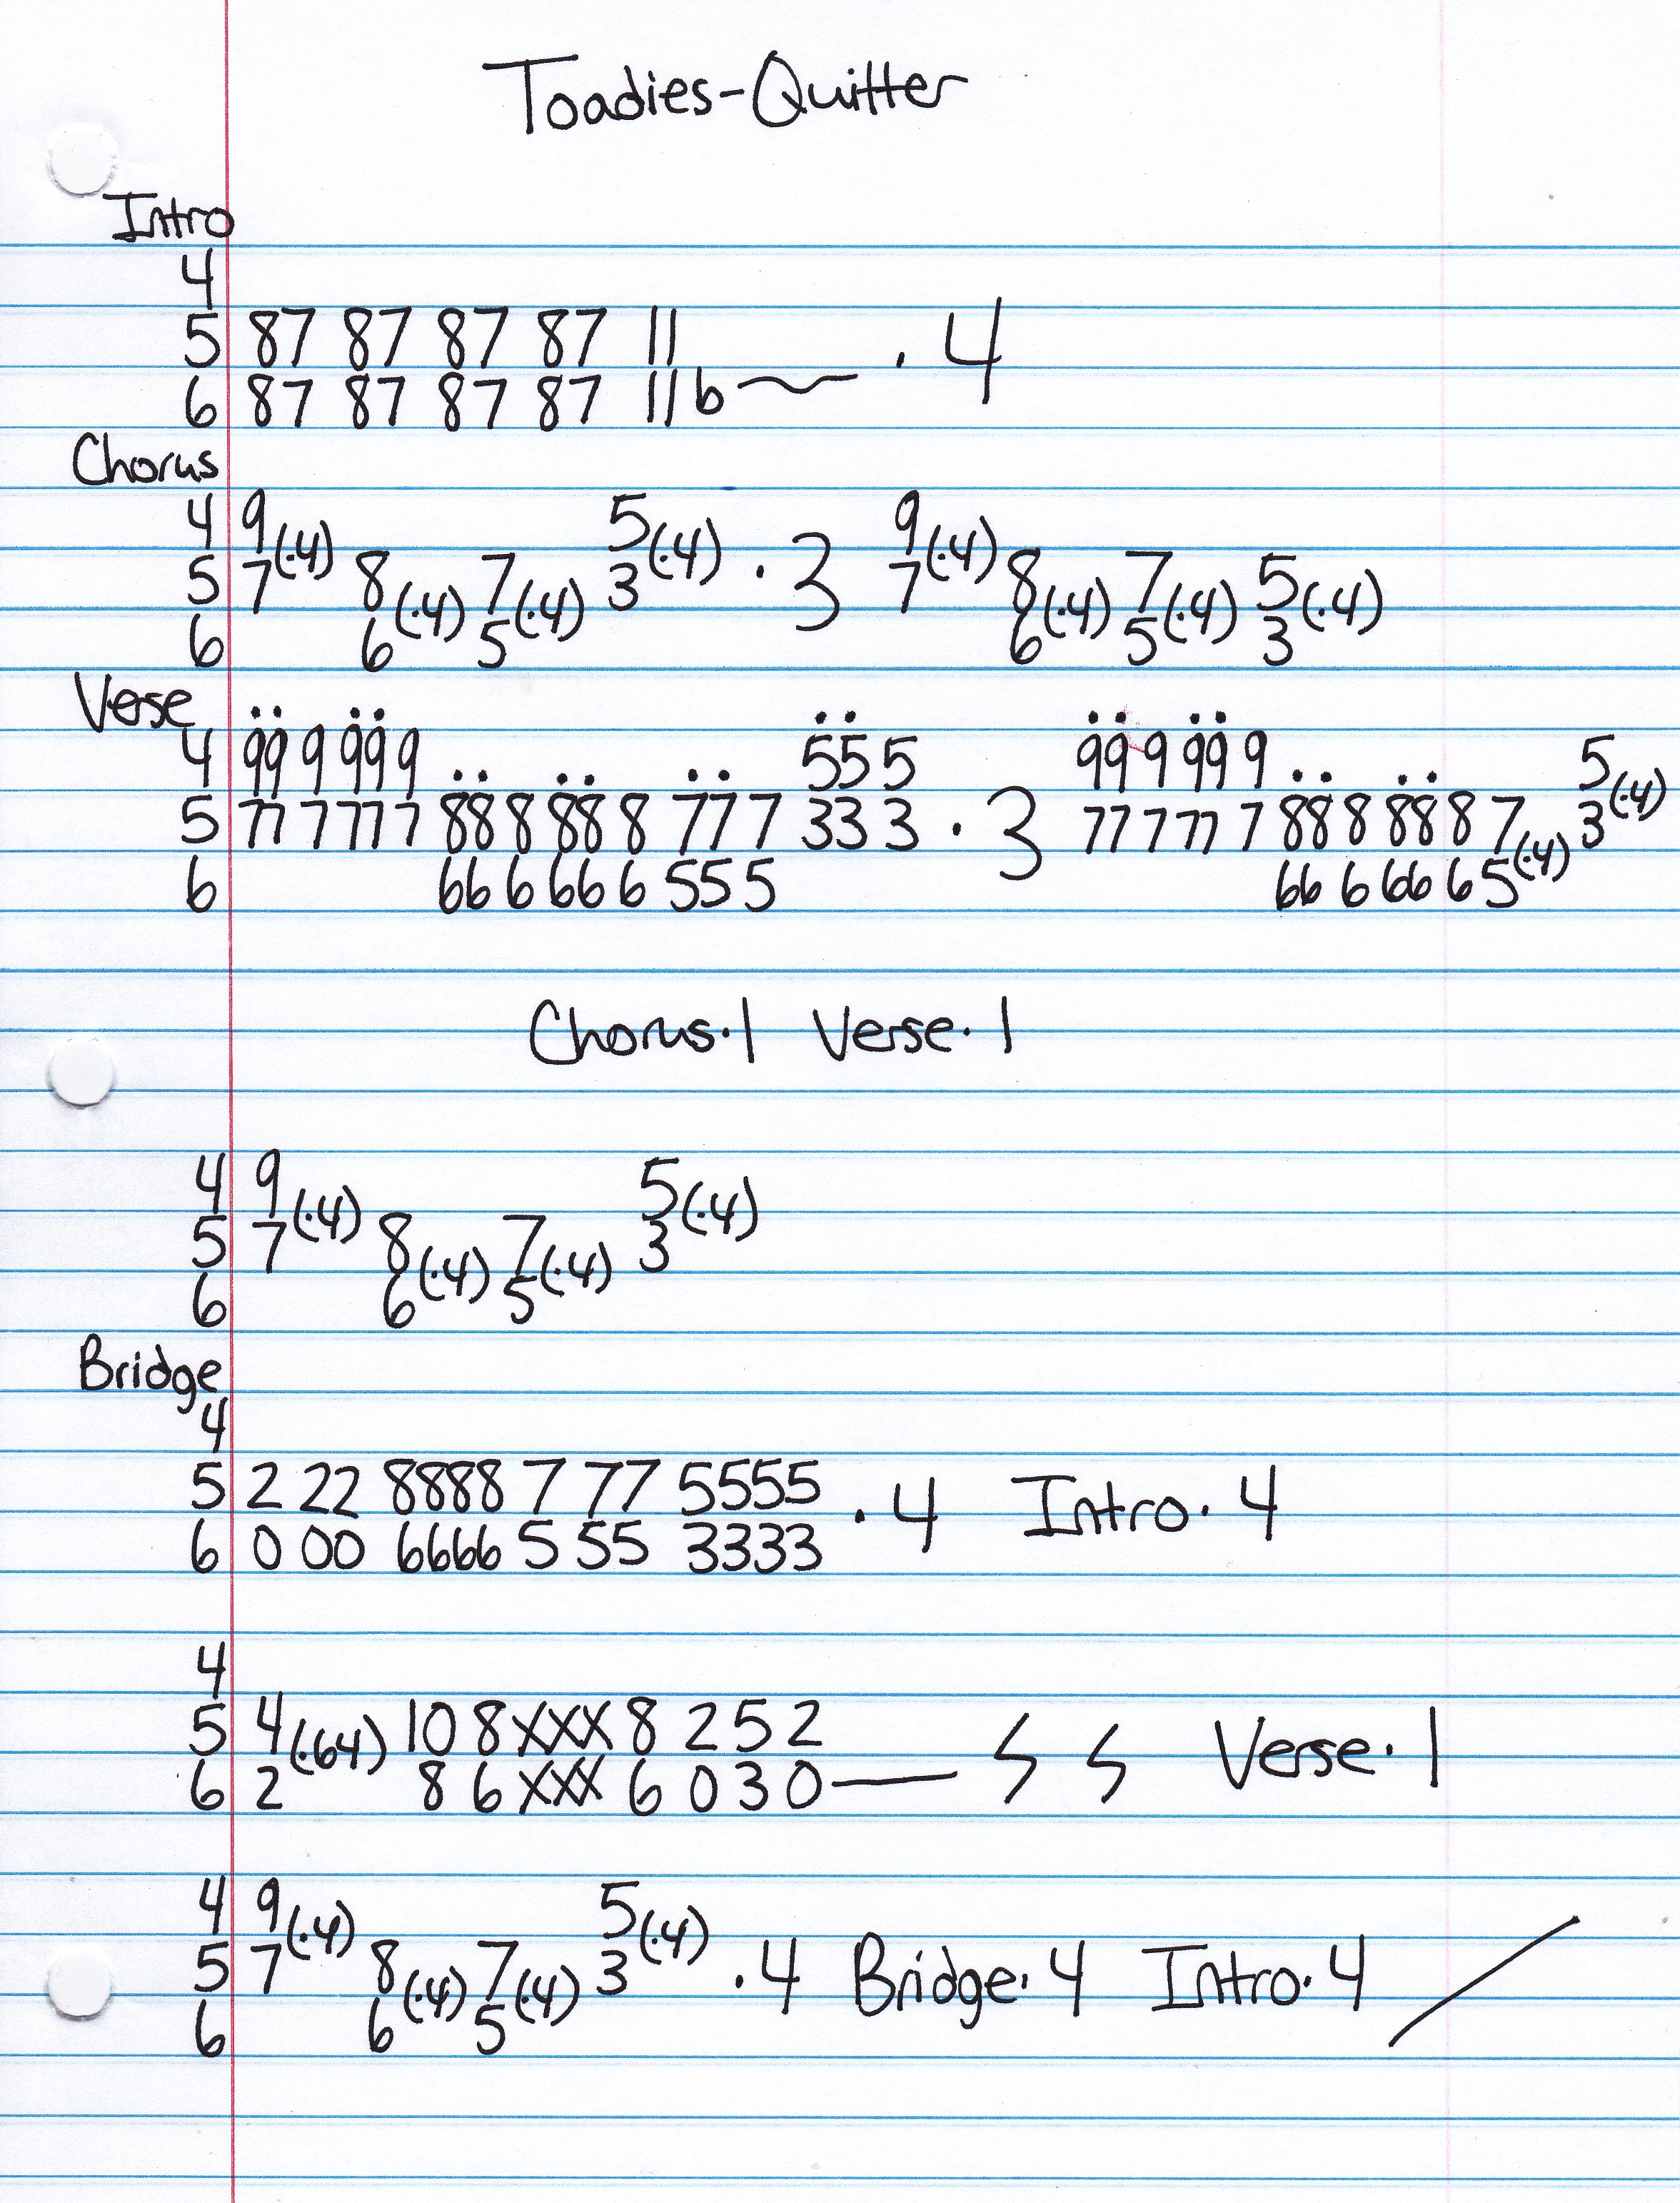 Toadies-Quitter
Intro
4
5 87 87 87 87 11
6 87 87 87 87 11b~ ·4
Chorus
4 9 5 9
5 7(·4) 8 7 3(·4) ·3 7(·4) 8 7 5
6 6(·4) 5(·4) 6(·4) 5(·4) 3(·4)
Verse
4 99 9 99 9 55 5 99 9 99 9 5
5 77 7 77 7 88 8 88 8 77 7 33 3 ·3 77 7 77 7 88 8 88 8 7 3(·4)
6 66 6 66 6 55 5 66 6 66 6 5(·4)
Chorus·1 Verse·1
4 9 5
5 7(·4) 8 7 3(·4)
6 6(·4) 5(·4)
Bridge
4
5 2 22 8888 7 77 5555
6 0 00 6666 5 55 3333 ·4 Intro·4
4
5 4 10 8 xxx 8 2 5 2
6 2(·64) 8 6 xxx 6 0 3 0— Verse·1
4 9 5
5 7(·4) 8 7 3(·4) ·4 Bridge·4 Intro·4 /
6 6(·4) 5(·4)